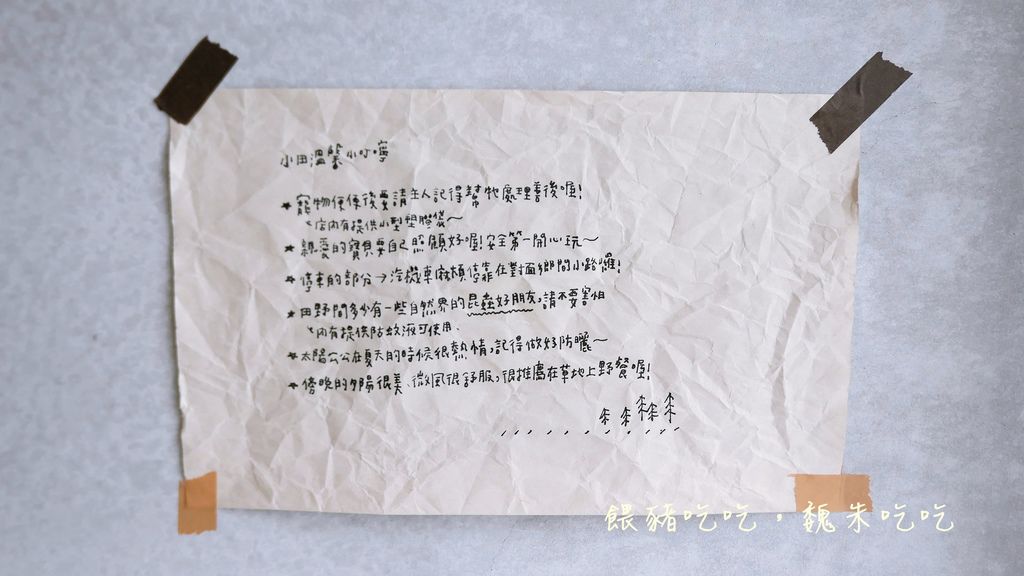 小田溫馨小叮嚀
★ 寵物便便後要請主人記得幫牠處理善後喔!
*店內有提供小型塑膠袋~
★ 親愛的寶貝要自己照顧好喔!安全第一開心玩~
★ 停車的部分→汽機車麻煩停靠在對面鄉間小路囉!
★ 田野間多少有一些自然界的昆蟲好朋友,請不要害怕
*內有提供防蚊液可使用.
★ 太陽公公在夏天的時候很熱情,記得做好防曬~
★ 傍晚的夕陽很美、微風很舒服,很推薦在草地上野餐喔!
餵豬吃吃,魏朱吃吃